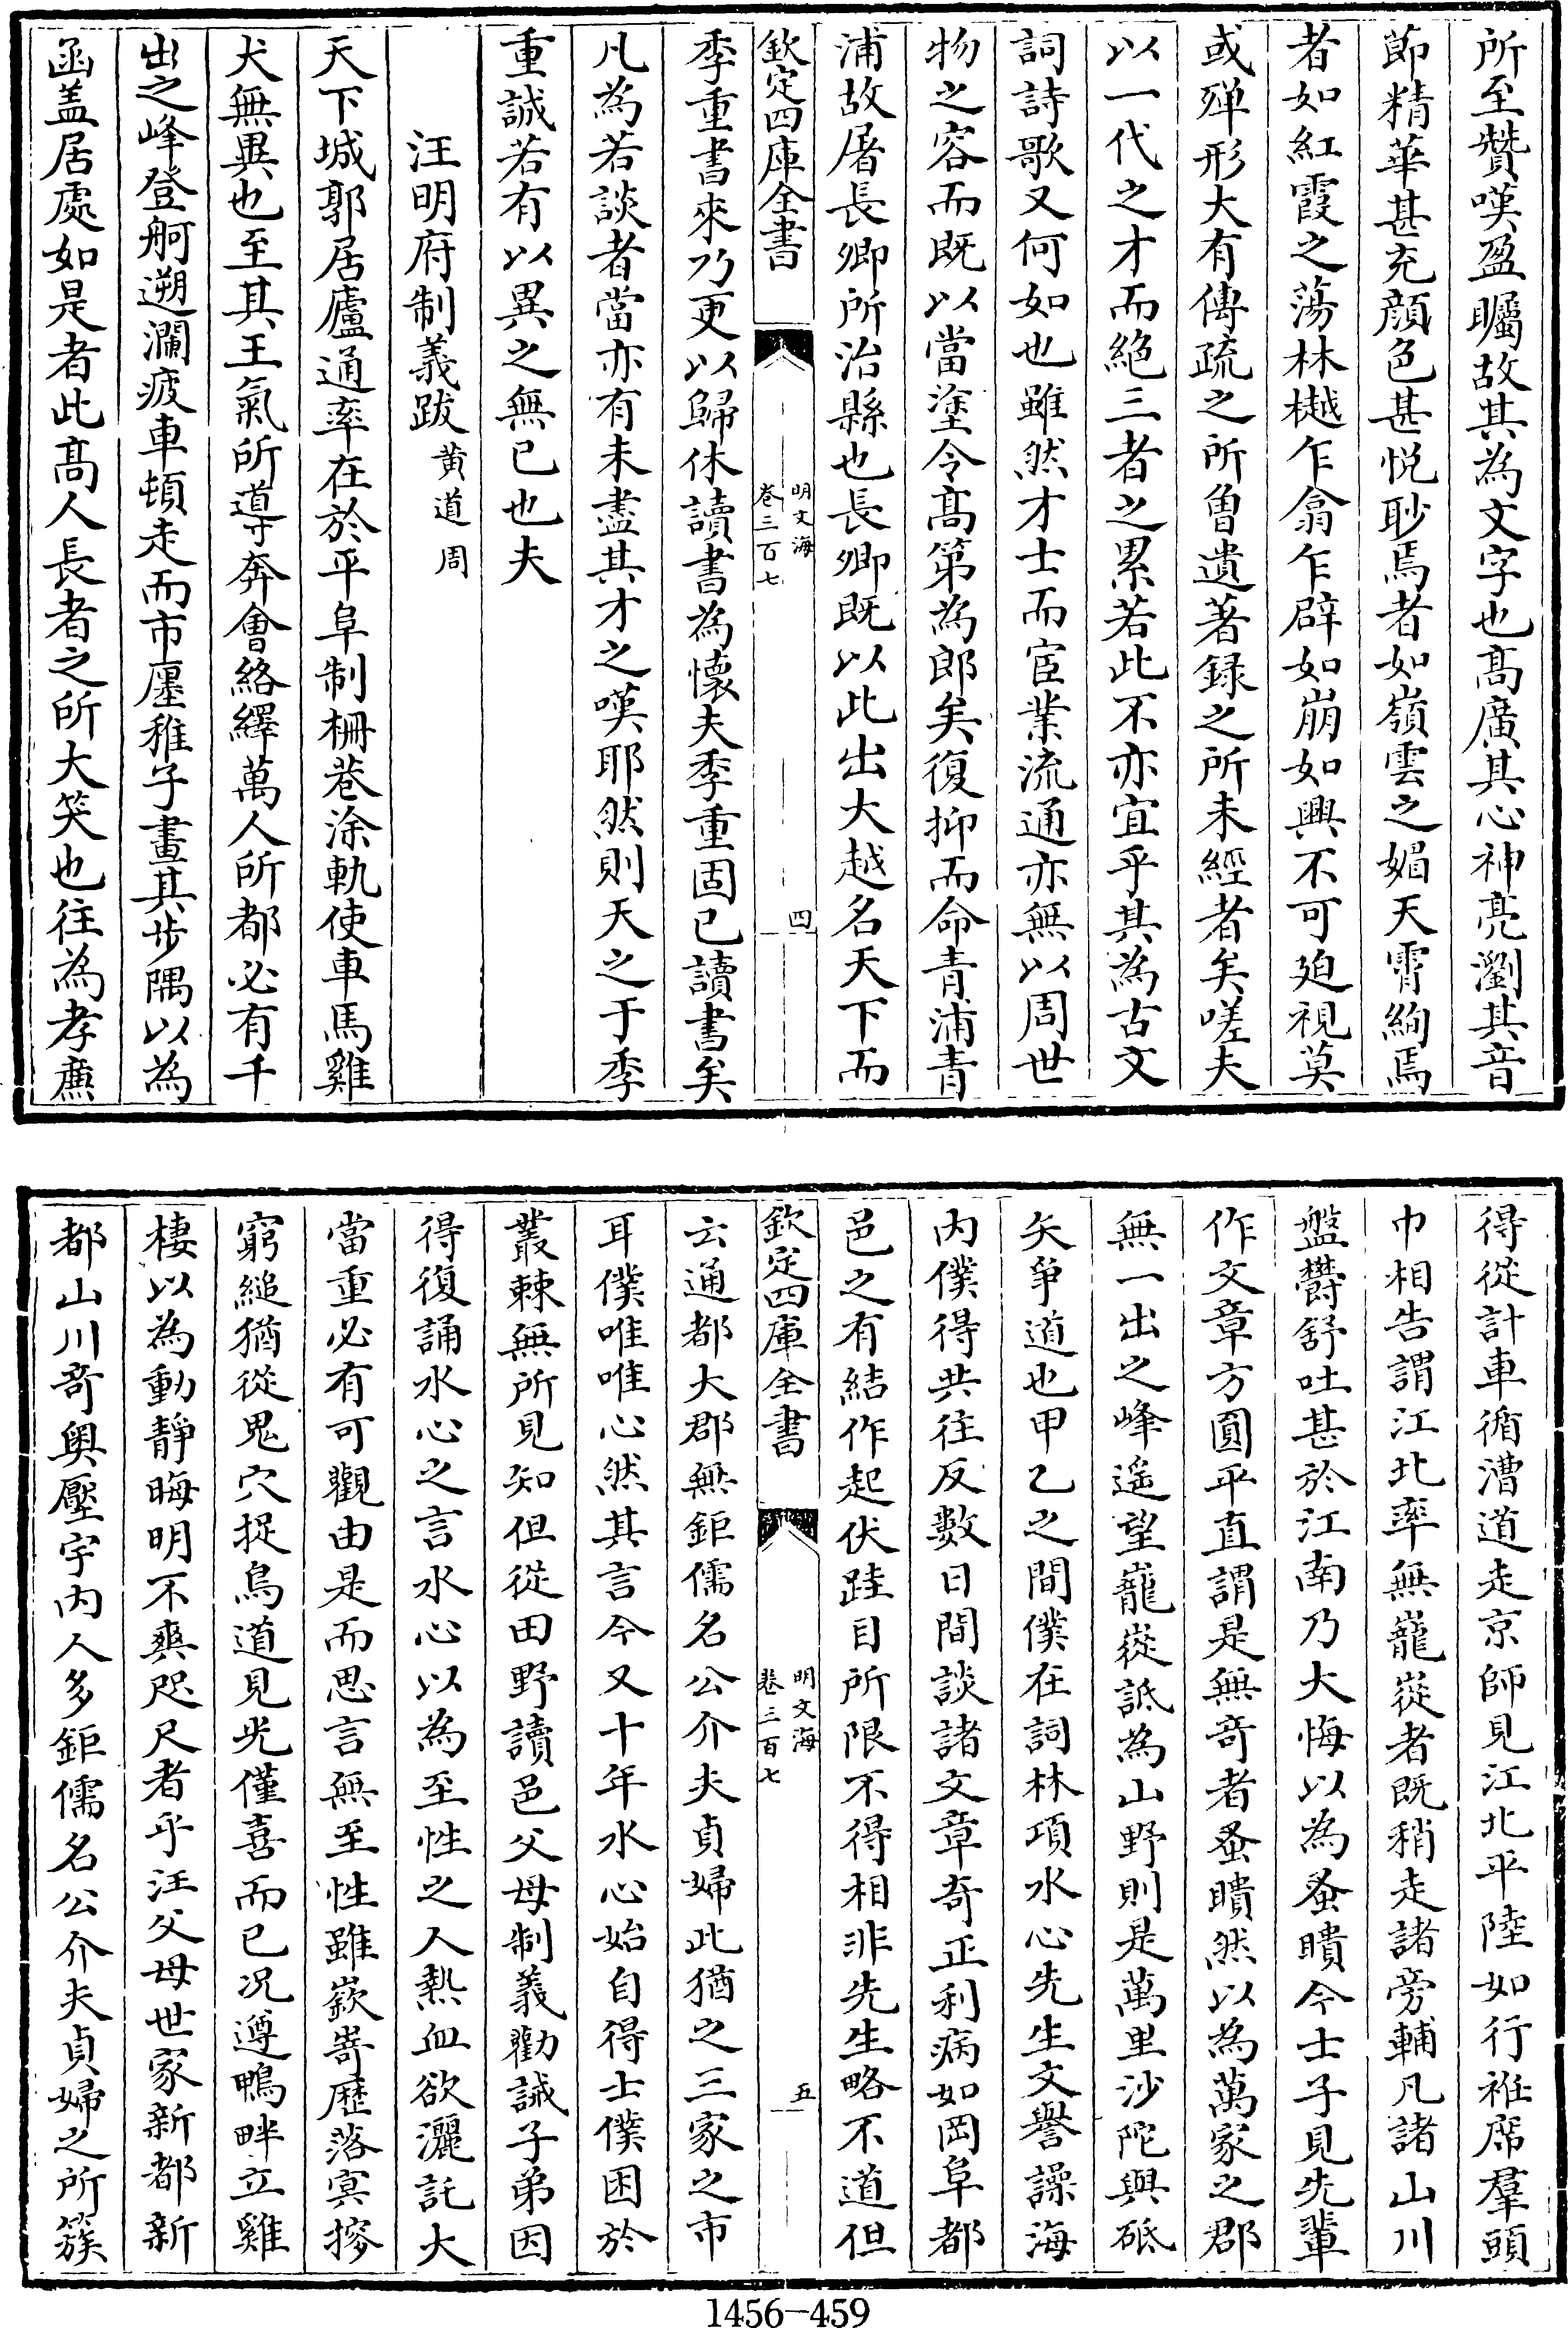 所至贊嘆盈矚故其為文字也髙廣其心神亮瀏其音
節精華甚充顔色甚悦眇焉者如嶺雲之媚天霄絢焉
者如紅霞之蕩林樾乍翕乍辟如崩如興不可廹視莫
或殫形大有傳疏之所曽遺著録之所未經者矣嗟夫
以一代之才而絶三者之累若此不亦宜乎其為古文
詞詩歌又何如也雖然才士而宦業流通亦無以周世
物之容而既以當塗令髙第為郎矣復抑而命青浦青
浦故屠長卿所治縣也長卿既以此出大越名天下而
欽定四庫全書
明文海
卷三百七
四
季重書來乃更以歸休讀書為懐夫季重固已讀書矣
凡為若談者當亦有未盡其才之嘆耶然則天之于季
重誠若有以異之無已也夫
汪明府制義跋黄道周
天下城郭居廬通率在於平阜制柵巷涂軌使車馬雞
犬無異也至其王氣所導奔會絡繹萬人所都必有千
出之峰登舸遡瀾疲車頓走而市廛稚子畫其步隅以為
函盖居處如是者此髙人長者之所大笑也往為孝亷
得從計車循漕道走京師見江北平陸如行袵席羣頭
巾相告謂江北率無巃嵸者既稍走諸旁輔凡諸山川
盤欝舒吐甚於江南乃大悔以為蚤瞶今士子見先輩
作文章方圓平直謂是無竒者蚤瞶然以為萬家之郡
無一出之峰遥望巃嵸詆為山野則是萬里沙陀與砥
矢爭道也甲乙之間僕在詞林項水心先生文譽譟海
内僕得共往反數日間談諸文章奇正利病如岡阜都
邑之有結作起伏跬目所限不得相非先生略不道但
欽定四庫全書
明文海
卷三百七
五
云通都大郡無鉅儒名公介夫貞婦此猶之三家之市
耳僕唯唯心然其言今又十年水心始自得士僕困於
叢棘無所見知但從田野讀邑父母制義勸誡子弟因
得復誦水心之言水心以為至性之人熱血欲灑託大
當重必有可觀由是而思言無至性雖嶔嵜歴落㝠搜
窮縋猶從鬼穴捉鳥道見光僅喜而已况遵鴨畔立雞
棲以為動靜晦明不爽咫尺者乎汪父母世家新都新
都山川竒奥壓宇内人多鉅儒名公介夫貞婦之所簇
1456-459